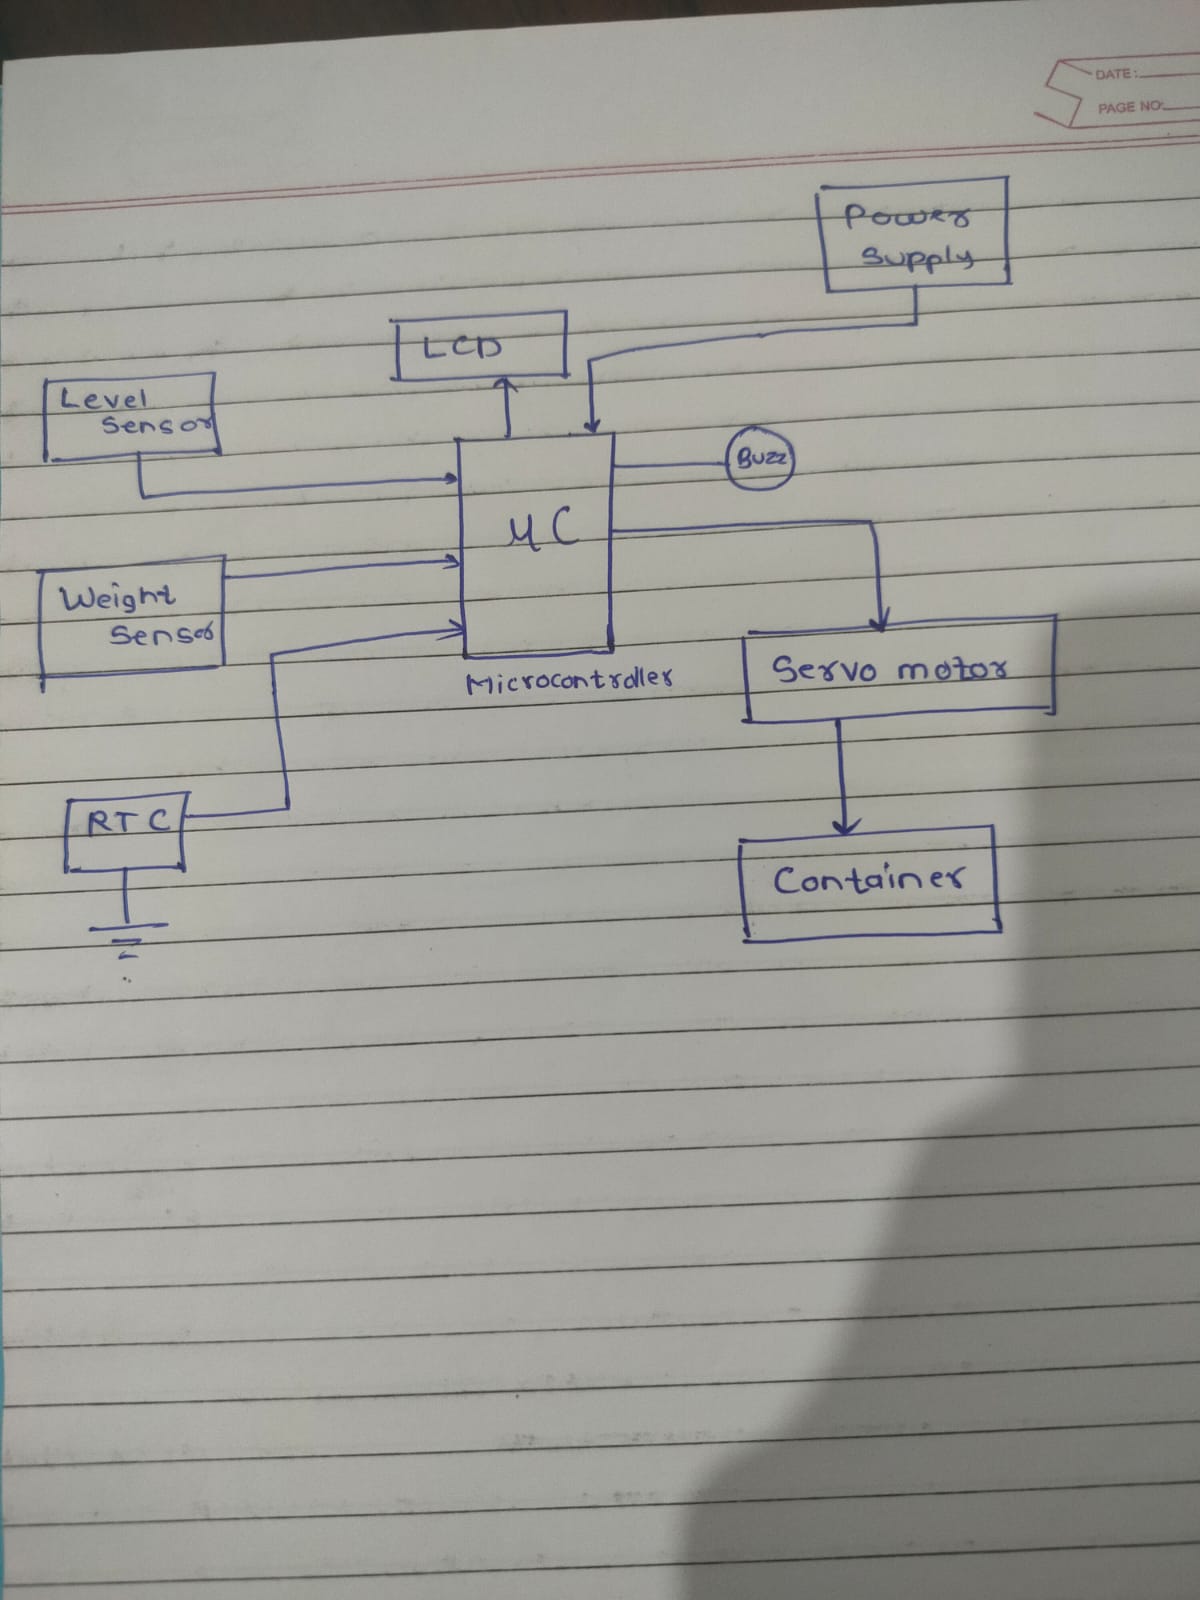 DATE:
PAGE NO:
Power
Supply
LCD
Level
Sensor
Buzz
μC
Weight
Sensor
Microcontroller
Servo motor
RTC
Container